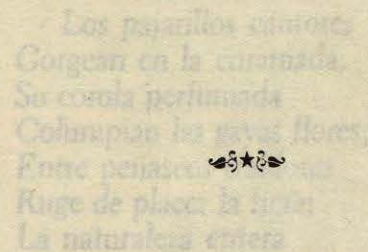 Los pajarillos cantores
Gorgean en la enramada;
Su corola perfumada
Columpian las gayas flores;
Entre
Ruge de placer la
La naturaleza entera